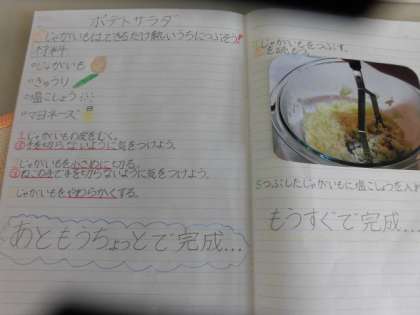 ポテトサラダ
じゃがいもはできるだけ熱いうちにつぶそう!
材料
じゃがいも
きゅうり
塩こしょう
マヨネーズ
1.じゃがいもの皮をむく。
手を切らないように気をつけよう。
じゃがいもを小さめに切る。
ねこの手で手を切らないように気をつけよう。
じゃがいもをやわらかくする。
あともうちょっとで完成...
じゃがいもをつぶす。
5つぶしたじゃがいもに塩こしょうを入れ
もうすぐで完成...